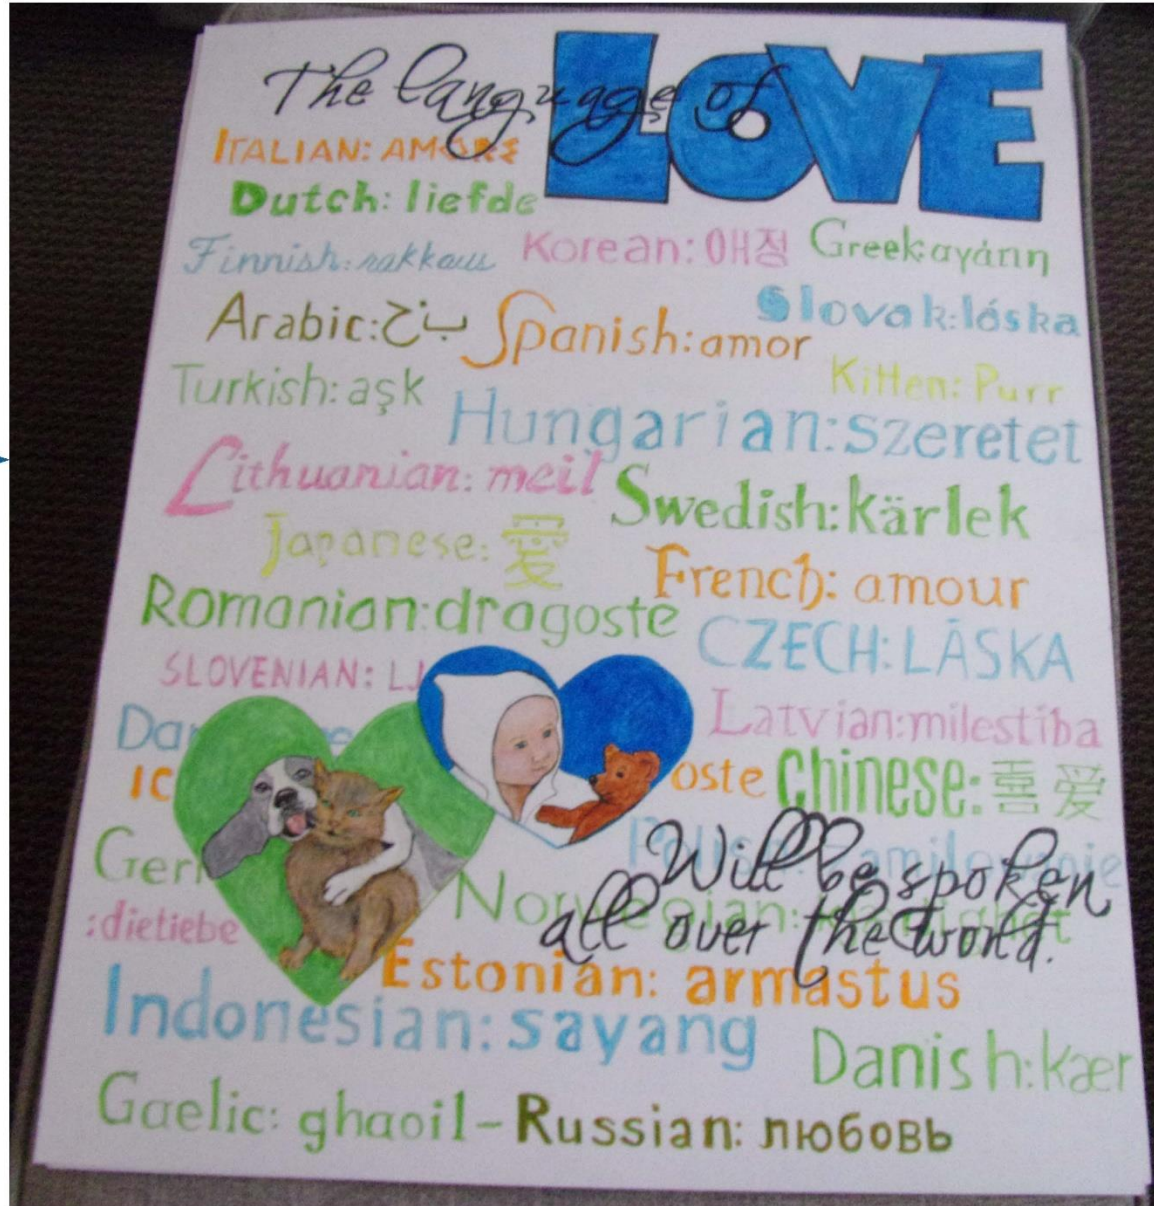 The language of LOVE
ITALIAN: AMORE
Dutch: liefde
Finnish: rakkaus Korean: 애정 Greek: αγάπη
Arabic: Slovak: láska
Spanish: amor
Turkish: aşk Kitten: Purr
Hungarian: szeretet
Lithuanian: meil Swedish: kärlek
Japanese: 愛 French: amour
Romanian: dragoste CZECH: LÁSKA
SLOVENIAN: LJ
Latvian: milestiba
Da
IC oste Chinese: 喜爱
Ger
Will be spoken
Norwegian:
:dieliebe all over the world.
Estonian: armastus
Indonesian: sayang
Danish: kær
Gaelic: ghaoil - Russian: любовь